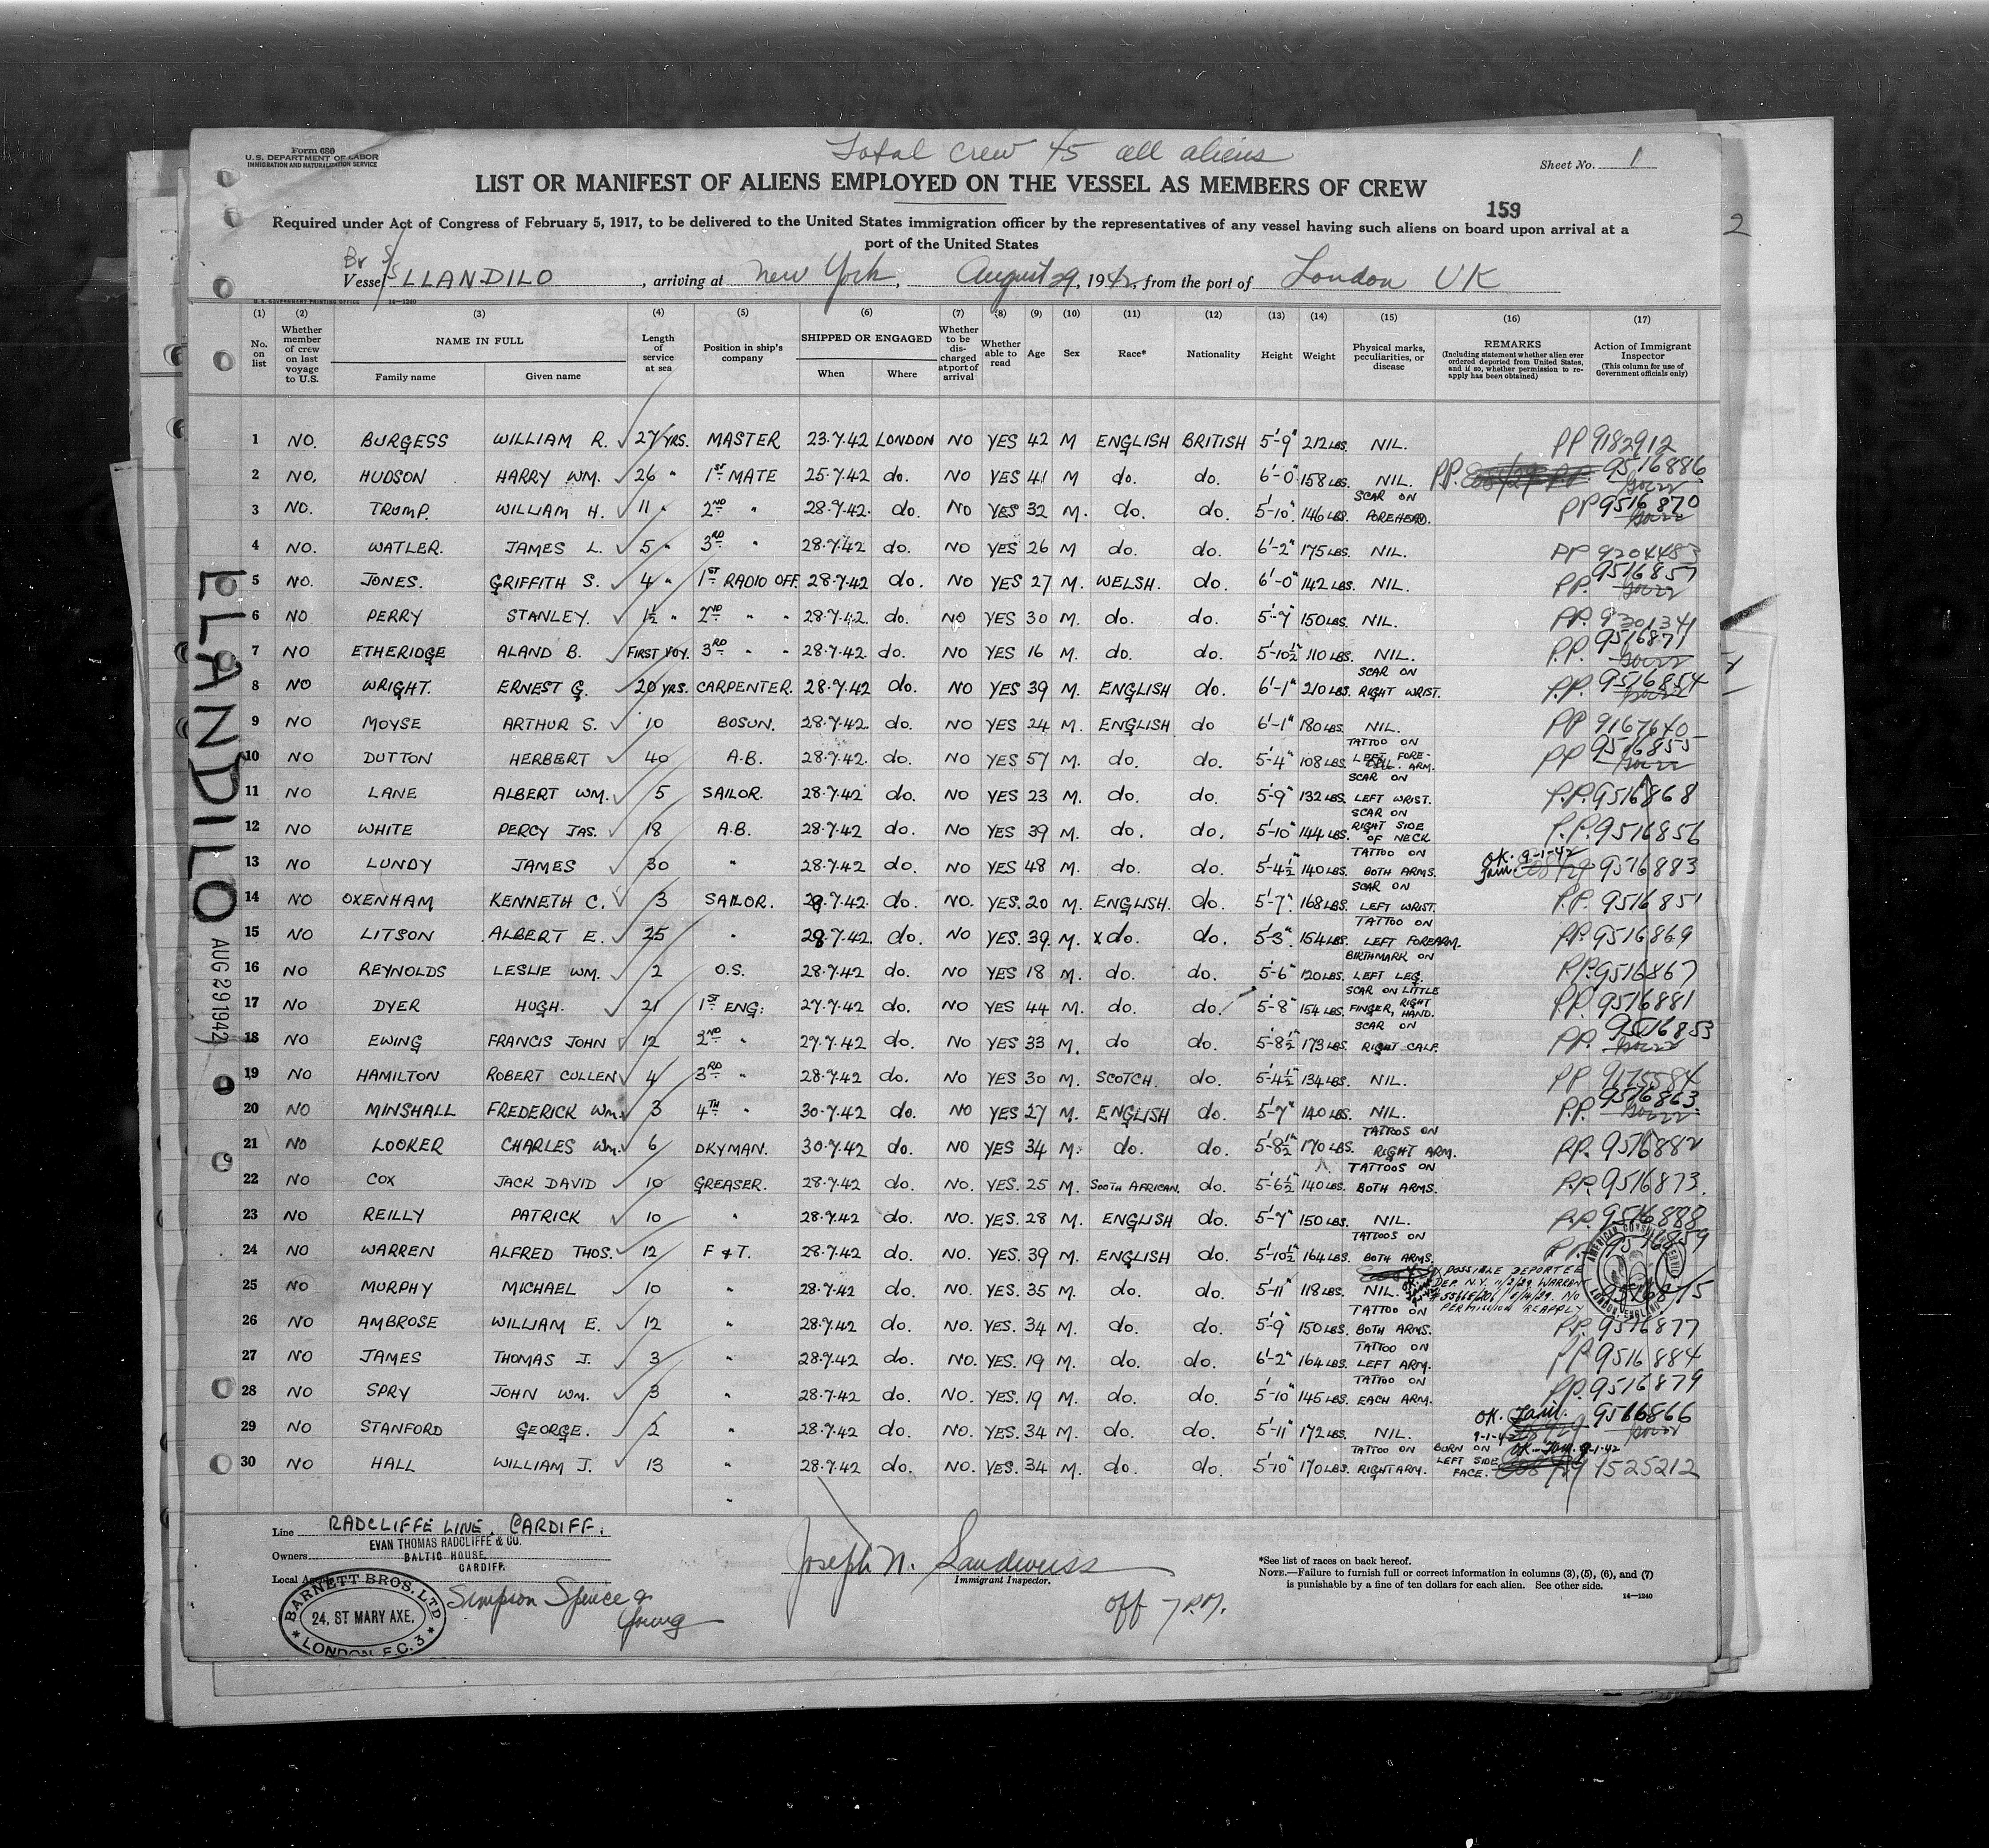 Form 680
U.S. DEPARTMENT OF LABOR
IMMIGRATION AND NATURALIZATION SERVICE
Total crew 45 all aliens
Sheet No. 1
LIST OR MANIFEST OF ALIENS EMPLOYED ON THE VESSEL AS MEMBERS OF CREW
159
Required under Act of Congress of February 5, 1917, to be delivered to the United States immigration officer by the representatives of any vessel having such aliens on board upon arrival at a
port of the United States
2
Br S/S
Vessel LLANDILO, arriving at New York, August 29, 1942, from the port of London UK
U. S. GOVERNMENT PRINTING OFFICE 14—1240
(1) (2) (3) (4) (5) (6) (7) (8) (9) (10) (11) (12) (13) (14) (15) (16) (17)
No. on list
Whether member of crew on last voyage to U.S.
NAME IN FULL
Family name
Given name
Length of service at sea
Position in ship's company
SHIPPED OR ENGAGED
When
Where
Whether to be discharged at port of arrival
Whether able to read
Age
Sex
Race*
Nationality
Height
Weight
Physical marks, peculiarities, or disease
REMARKS
(Including statement whether alien ever ordered deported from United States, and if so, whether permission to reapply has been obtained)
Action of Immigrant Inspector
(This column for use of Government officials only)
1 NO. BURGESS WILLIAM R. 27 YRS. MASTER 23.7.42 LONDON NO YES 42 M ENGLISH BRITISH 5'-9" 212 LBS. NIL. PP 9182912
2 NO. HUDSON HARRY WM. 26 " 1ST MATE 25.7.42 do. NO YES 41 M do. do. 6'-0" 158 LBS. NIL. PP. 9516886
3 NO. TRUMP. WILLIAM H. 11 " 2ND " 28.7.42. do. NO YES 32 M. do. do. 5'-10" 146 LBS. SCAR ON FOREHEAD. PP 9516870
4 NO. WATLER. JAMES L. 5 " 3RD " 28.7.42 do. NO YES 26 M do. do. 6'-2" 175 LBS. NIL. PP 9204483
5 NO. JONES. GRIFFITH S. 4 " 1ST RADIO OFF. 28.7.42 do. NO YES 27 M. WELSH. do. 6'-0" 142 LBS. NIL. PP. 9516857
6 NO PERRY STANLEY. 1½ " 2ND " " 28.7.42. do. NO YES 30 M. do. do. 5'-7" 150 LBS. NIL. PP. 9301341
7 NO ETHERIDGE ALAND B. FIRST VOY. 3RD " " 28.7.42. do. NO YES 16 M. do. do. 5'-10½" 110 LBS. NIL. P.P. 9516871
8 NO WRIGHT. ERNEST G. 20 YRS. CARPENTER. 28.7.42 do. NO YES 39 M. ENGLISH do. 6'-1" 210 LBS. SCAR ON RIGHT WRIST. P.P. 9516854
9 NO MOYSE ARTHUR S. 10 BOSUN. 28.7.42. do. NO YES 24 M. ENGLISH do 6'-1" 180 LBS. NIL. PP 9167640
10 NO DUTTON HERBERT 40 A.B. 28.7.42. do. NO YES 57 M. do. do. 5'-4" 108 LBS. TATTOO ON LEFT FORE-ARM. PP 9516855
11 NO LANE ALBERT WM. 5 SAILOR. 28.7.42 do. NO YES 23 M. do. do. 5'-9" 132 LBS. SCAR ON LEFT WRIST. P.P. 9516868
12 NO WHITE PERCY JAS. 18 A.B. 28.7.42 do. NO YES 39 M. do. do. 5'-10" 144 LBS. SCAR ON RIGHT SIDE OF NECK P.P. 9516856
13 NO LUNDY JAMES 30 " 28.7.42 do. NO YES 48 M. do. do. 5'-4½" 140 LBS. TATTOO ON BOTH ARMS. OK. 9-1-42 9516883
14 NO OXENHAM KENNETH C. 3 SAILOR. 28.7.42. do. NO. YES. 20 M. ENGLISH. do. 5'-7" 168 LBS. SCAR ON LEFT WRIST. P.P. 9516851
15 NO LITSON ALBERT E. 25 " 28.7.42. do. NO YES. 39 M. x do. do. 5'-3" 154 LBS. TATTOO ON LEFT FOREARM. PP. 9516869
16 NO REYNOLDS LESLIE WM. 2 O.S. 28.7.42 do. NO YES 18 M. do. do. 5'-6" 120 LBS. BIRTHMARK ON LEFT LEG. P.P. 9516867
17 NO DYER HUGH. 21 1ST ENG: 27.7.42 do. NO YES 44 M. do. do. 5'-8" 154 LBS. SCAR ON LITTLE FINGER, RIGHT HAND. P.P. 9516881
18 NO EWING FRANCIS JOHN 12 2ND " 27.7.42 do. NO YES 33 M. do do. 5'-8½" 173 LBS. SCAR ON RIGHT CALF. PP. 9516853
19 NO HAMILTON ROBERT CULLEN 4 3RD " 28.7.42 do. NO YES 30 M. SCOTCH. do. 5'-4½" 134 LBS. NIL. PP 9175584
20 NO MINSHALL FREDERICK WM. 3 4TH " 30.7.42 do. NO YES 27 M. ENGLISH do. 5'-7" 140 LBS. NIL. P.P. 9516863
21 NO LOOKER CHARLES WM. 6 DKYMAN. 30.7.42 do. NO YES 34 M. do. do. 5'-8½" 170 LBS. TATTOOS ON RIGHT ARM. P.P. 9516882
22 NO COX JACK DAVID 10 GREASER. 28.7.42 do. NO. YES. 25 M. SOUTH AFRICAN. do. 5'-6½" 140 LBS. TATTOOS ON BOTH ARMS. P.P. 9516873
23 NO REILLY PATRICK 10 " 28.7.42 do. NO. YES. 28 M. ENGLISH do. 5'-7" 150 LBS. NIL. P.P. 9516888
24 NO WARREN ALFRED THOS. 12 F & T. 28.7.42 do. NO. YES. 39 M. ENGLISH do. 5'-10½" 164 LBS. TATTOOS ON BOTH ARMS. P.P. 9516859
25 NO MURPHY MICHAEL 10 " 28.7.42 do. NO. YES. 35 M. do. do. 5'-11" 118 LBS. NIL. POSSIBLE DEPORTEE DEP. N.Y. 11/2/29 WARRENT NO PERMISSION REAPPLY
26 NO AMBROSE WILLIAM E. 12 " 28.7.42 do. NO. YES. 34 M. do. do. 5'-9" 150 LBS. TATTOO ON BOTH ARMS. P.P. 9516877
27 NO JAMES THOMAS J. 3 " 28.7.42 do. NO. YES. 19 M. do. do. 6'-2" 164 LBS. TATTOO ON LEFT ARM. PP 9516884
28 NO SPRY JOHN WM. 3 " 28.7.42 do. NO. YES. 19 M. do. do. 5'-10" 145 LBS. TATTOO ON EACH ARM. PP. 9516879
29 NO STANFORD GEORGE. 2 " 28.7.42 do. NO. YES. 34 M. do. do. 5'-11" 172 LBS. NIL. OK. 9-1-42 9516866
30 NO HALL WILLIAM J. 13 " 28.7.42 do. NO. YES. 34 M. do. do. 5'-10" 170 LBS. TATTOO ON RIGHT ARM. BURN ON LEFT SIDE FACE. OK 9-1-42 1525212
"
LLANDILO
AUG 29 1942
AMERICAN CONSULATE GENERAL
LONDON, ENGLAND
Line RADCLIFFE LINE. CARDIFF.
Owners EVAN THOMAS RADCLIFFE & CO.
BALTIC HOUSE,
CARDIFF.
Local Agents Simpson Spence & Young
BARNETT BROS. LTD
24, ST MARY AXE,
LONDON E.C. 3
Joseph N. Landweiss
Immigrant Inspector.
Off 7 P.M.
*See list of races on back hereof.
NOTE.—Failure to furnish full or correct information in columns (3), (5), (6), and (7)
is punishable by a fine of ten dollars for each alien. See other side.
14—1240